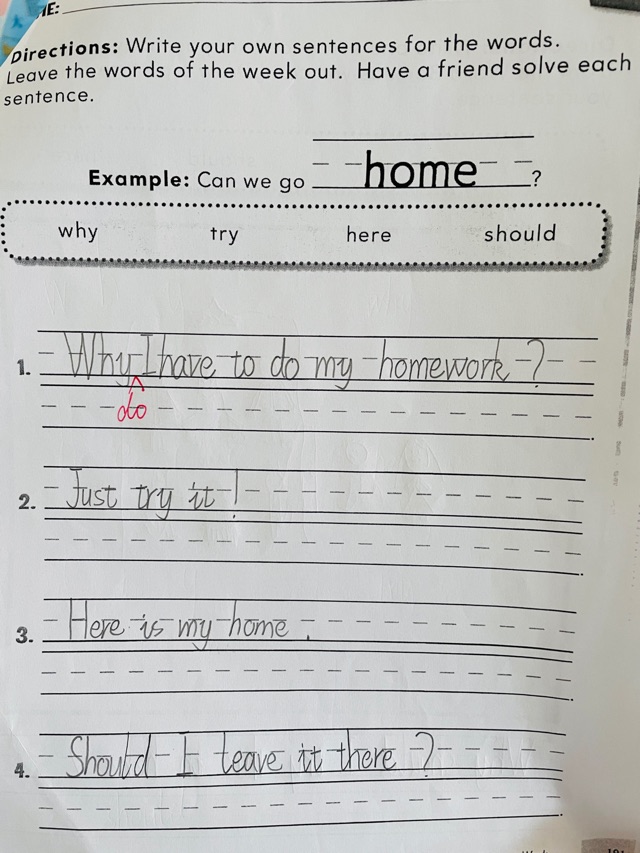 ME:
Directions: Write your own sentences for the words.
Leave the words of the week out. Have a friend solve each
sentence.
Example: Can we go home ?
why try here should
1. Why I have to do my homework ?
do
.
2. Just try it !
.
3. Here is my home .
.
4. Should I leave it there ?
.